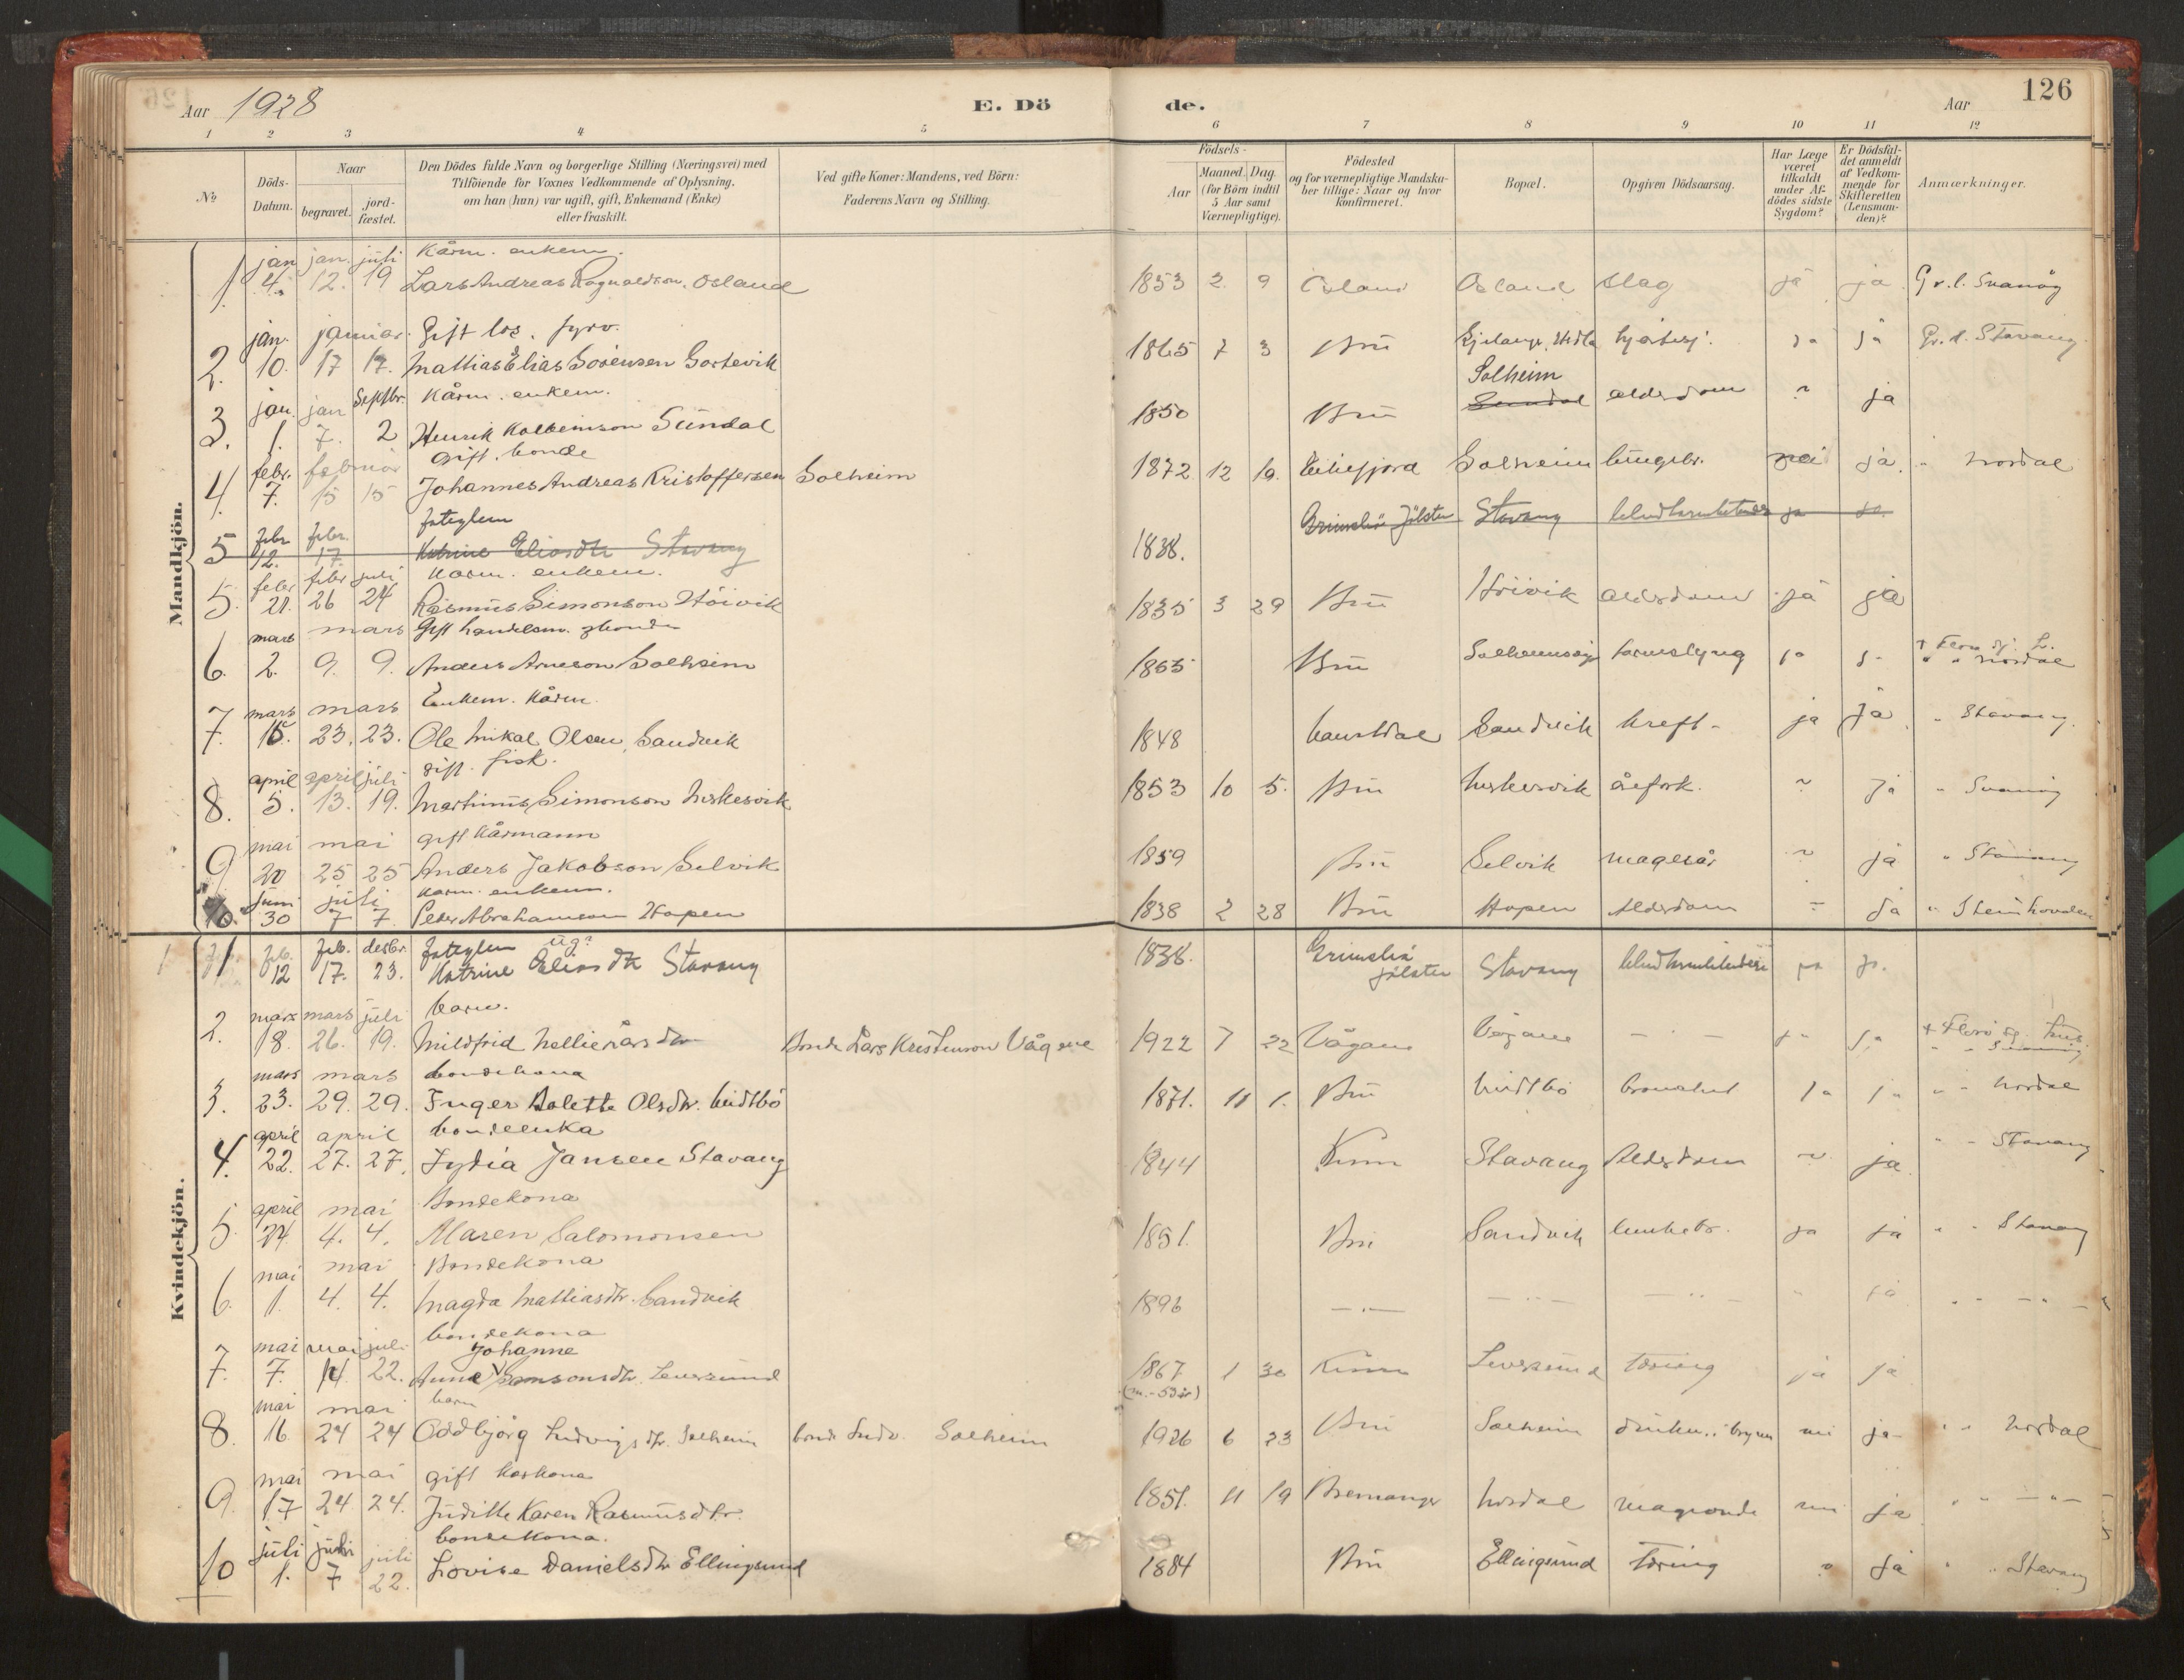 Aar 1928
E. Dö
de.
Aar
126
1 2 3 4 5 6 7 8 9 10 11 12
No
Döds-Datum.
Naar
begravet.
jord-fæstet.
Den Dödes fulde Navn og borgerlige Stilling (Næringsvei) med
Tilföiende for Voxnes Vedkommende af Oplysning,
om han (hun) var ugift, gift, Enkemand (Enke)
eller fraskilt.
Ved gifte Koner: Mandens, ved Börn:
Faderens Navn og Stilling.
Födsels-
Aar
Maaned. Dag.
(for Börn indtil
5 Aar samt
Værnepligtige).
Födested
og for værnepligtige Mandska-
ber tillige: Naar og hvor
konfirmeret.
Bopæl.
Opgiven Dödsaarsag.
Har Læge
været
tilkaldt
under Af-
dödes sidste
Sygdom?
Er Dödsfal-
det anmeldt
af Vedkom-
mende for
Skifteretten
(Lensman-
den)?
Anmærkninger.
Mandkjön.
jan jan. juli Kårm. enkem.
1. 4. 12. 19 Lars Andreas Ragnaldson. Osland 1853 2. 9 Osland Osland slag ja ja Gr. l. Svanöy
jan. januar. Gift los. fyrv.
2. 10. 17 17. Mathias Elias Sörensen Gortevik 1865 7 3 Bru ja ja Gr. l. Stavang
jan. jan Septbr. Kårm. enkem. Solheim
3. 1. 7. 2 Henrik Kolbeinson Sundal 1850 Bru Sundal alderdom ja
febr. februar gift. bonde
4. 7. 15 15 Johannes Andreas Kristoffersen Solheim 1872 12 19. Eikefjord Solheim lungebr. nei ja " Nordal
febr. febr. fateglem
5 12. 17. Katrine Eliasdtr Stavang 1838. Grimslia Jölster Stavang ja ja
febr febr juli Karm. enkem.
5. 21. 26 24 Rasmus Simonson Höivik 1835 3 29 Bru Höivik alderdom ja ja
mars mars Gift handelsm. gbonde
6. 2. 9. 9. Anders Arneson Solheim 1865 Bru tarmslyng ja ja + Florö sj. L. " " Nordal
mars mars Enkem. Kårm.
7. 15. 23. 23. Ole Mikal Olsen, Sandvik 1848 Naustdal Sandvik kreft - ja ja " Stavang.
april april juli gift. fisk.
8. 5. 13. 19. Martinus Simonson Niskesvik 1853 10 5. Bru Niskesvik årefork. ja " Svanöy
mai mai gift Kårmann
9 20 25 25 Anders Jakobson Selvik 1859 Bru Selvik magesår ja " Stavang
juni juli Karm. enkem.
10. 30 7 7. Peder Abrahamson Hopen 1838 2 28 Bru Hopen Alderdom ja " Steinhovden
Kvindekjön.
feb. feb. desbr. fateglem ug.
1 12 17. 23. Katrine Eliasdtr Stavang 1838. Grimslia Jölster Stavang ja ja.
mars mars juli barn.
2. 18. 26. 19. Mildfrid Nellie Larsdtr Bonde Lars Kristenson Vågene 1922 7 22 Vågane Vågane - - ja ja + Florö sj. hus. " " Svanöy
mars mars bondekona
3. 23. 29. 29. Inger Dolette Olsdtr. Midtbö 1871. 11 1. Bru Midtbö ja ja " - Nordal
april april bondeenka
4. 22. 27. 27. Lydia Jansen Stavang 1844 Kinn Stavang Alderdom ja " - Stavang
april mai Bondekona
5. 24. 4. 4. Maren Salomonsen 1851. Bru Sandvik ja ja " " Stavang
mai mai Bondekona
6. 1. 4. 4. Magda Mathiasdtr. Sandvik 1896 — " — — " — — " — " ja " " — " —
mai mai juli bondekona Johanne
7. 7. 14. 22. Anna Samsonsdtr. Leversund 1867 1 30 Kinn Leversund Tæring ja ja
mai mai barn
8. 16. 24 24 Oddbjörg Ludvigsdtr. Solheim bonde Ludv. Solheim 1926 6 23 Bru Solheim nei ja " " Nordal
mai mai gift karkona
9. 17 24 24. Judithe Karen Rasmusdtr. 1851. 11 19 Bremanger Nordal mageonde nei ja " " — " —
juli juli juli bondekona.
10 1. 7 22. Lovise Danielsdtr Ellingsund 1884 Bru Ellingsund Tæring ja " " Stavang